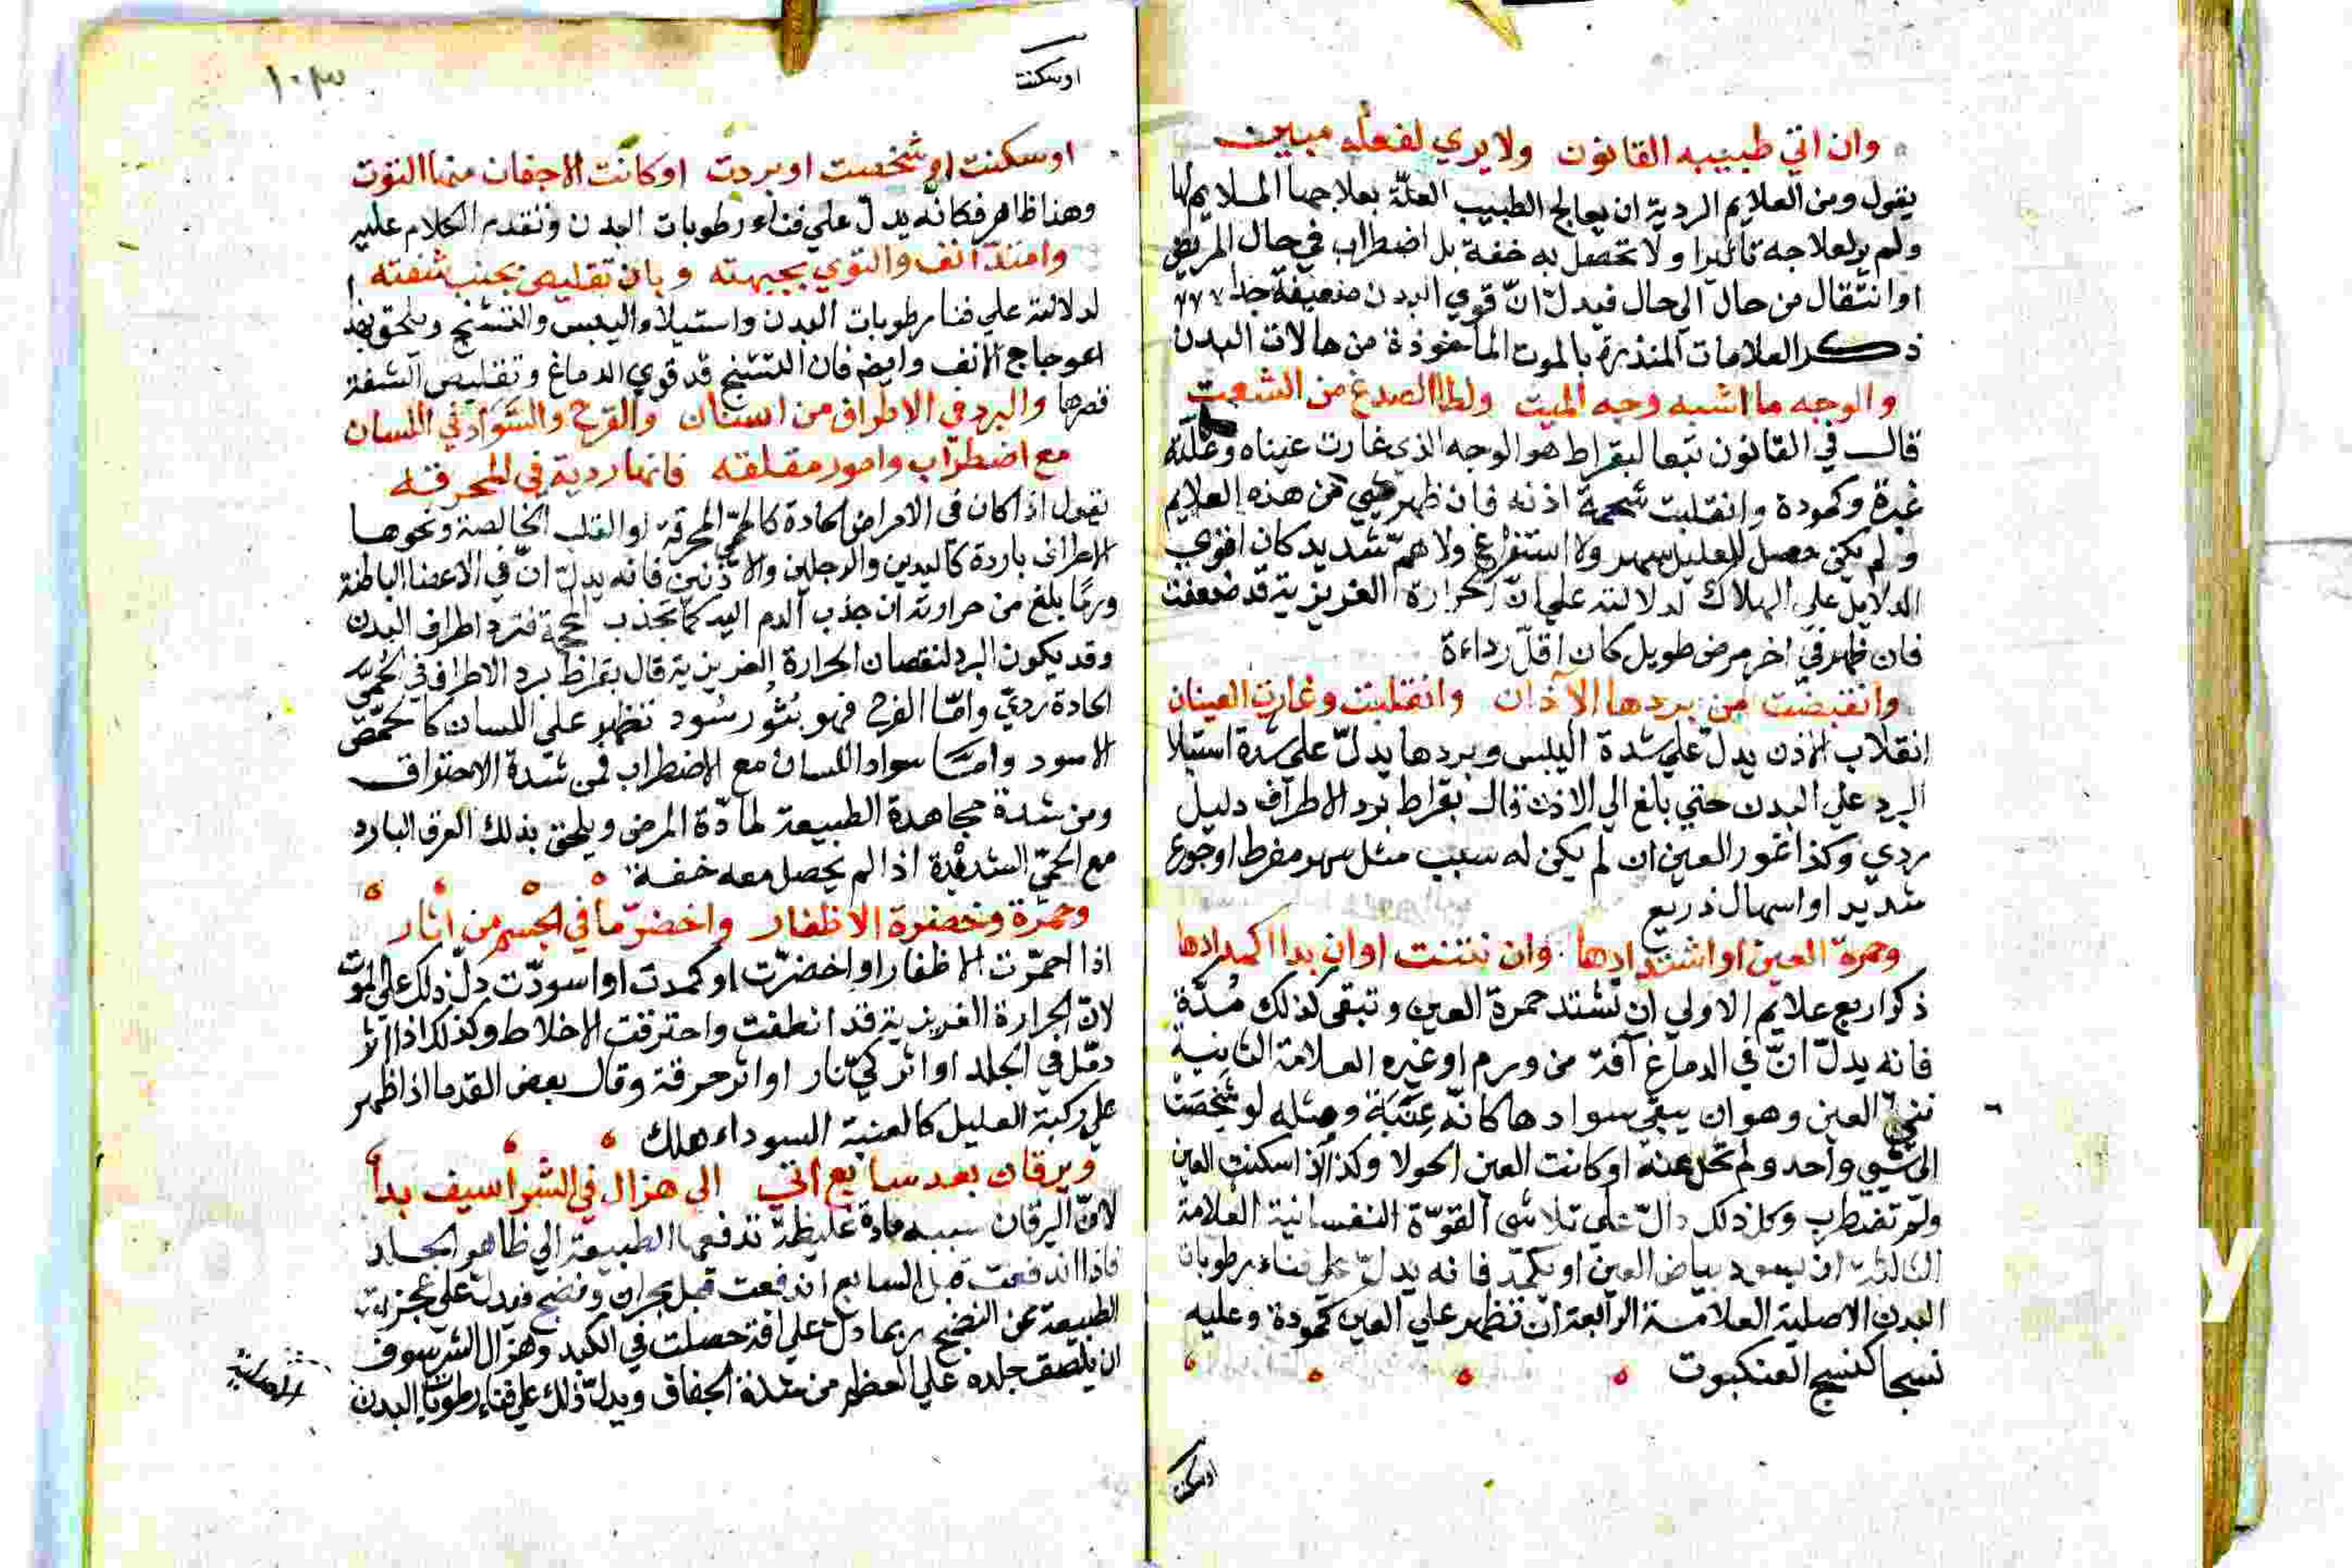 وان اتي طبيبه القانون ولا يري لفعله مبين
يقول ومن العلايم الردية ان يعالج الطبيب العلّة بعلاجها الملايم لها
ولم ير لعلاجه تاثيرا ولا تحصل به خفة بل اضطراب في حال المريض
او انتقال من حال الي حال فيدلّ انّ قوي البدن ضعيفة جدا
ذكر العلامات المنذرة بالموت الماخوذة من حالات البدن
والوجه ما اشبه وجه الميت ولطا الصدغ من
قال في القانون تبعا لبقراط هو الوجه الذي غارت عيناه وعلته
غبرة وكمودة وانقلبت شحمة اذنه فان ظهر شي من هذه العلايم
ولم يكن حصل للعليل سهر ولا استفراغ ولا همّ شديد كان اقوي
الدلايل علي الهلاك لدلالته علي انّ الحرارة الغريزية قد ضعفت
فان ظهر في اخر مرض طويل كان اقلّ رداءة
وانقبضت من بردها الآذان وانقلبت وغارت العينان
انقلاب الاذن يدل علي شدة اليبس وبردها يدلّ علي شدة استيلا
البرد علي البدن حتي بلغ الي الاذن قال بقراط برد الاطراف دليل
ردي وكذا غور العين ان لم يكن له سبب مثل سهر مفرط او جوع
شديد او اسهال ذريع
وحمرة العين او اشتدادها وان نتنت او ان بدا اكمدادها
ذكر اربع علايم الاولي ان تشتد حمرة العين وتبقي كذلك مُدّة
فانه يدلّ انّ في الدماغ آفة من ورم او غيره العلامة الثانية
العين وهو ان يبقي سوادها كانّه عِنَبَة ومثله لو شَخَصَتْ
الي شي واحد ولم تحل عنه او كانت العين الحولا وكذا اذا سكنت العين
ولم تضطرب وكل ذلك دالّ علي تلاشي القوّة النفسانية العلامة
الثالثة ان يسود بياض العين او يكمد فانه يدلّ علي فناء رطوبات
البدن الاصلية العلامة الرابعة ان تظهر علي العين كمودة وعليه
نسجا كنسج العنكبوت
اوسكنت
١٠٣
اوسكنت
اوسكنت او شخصت او بردت او كانت الاجفان منها التوت
وهذا ظاهر فكانه يدلّ علي فناء رطوبات البدن وتقدم الكلام عليه
وامتدّ انف والتوي بجبهته وبان تقليص بجنب شفته
لدلالته علي فنا رطوبات البدن واستيلاء اليبس والتشنج ويلحق بهذا
اعوجاج الانف وايض فان التشنج قد قوي الدماغ وتقليص الشفة
قصرها والبرد في الاطراف من اسنان والقرح والسّواد في اللسان
مع اضطراب وامور مقلقه فانها ردية في المحرقه
يقول اذا كان في الامراض الحادة كالحمّي المحرقة او الغب الخالصة ونحوها
الاطراف باردة كاليدين والرجلين والاذنين فانه يدلّ انّ في الاعضا الباطنة
وربما بلغ من حرارته ان جذب الدم اليه كما تجذب المحجمة فتبرد اطراف البدن
وقد يكون البرد لنقصان الحرارة الغريزية قال بقراط برد الاطراف في الحُمّي
الحادة رديّ وامّا القرح فهو بُثُور سُود تظهر علي اللسان كالحُمّص
الاسود وامّا سواد اللسان مع الاضطراب فمن شدة الاحتراق
ومن شدة مجاهدة الطبيعة لمادّة المرض ويلحق بذلك العرق البارد
مع الحمّي الشديدة اذا لم يحصل معه خفة
وحمرة وخضرة الاظفار واخضرّ ما في الجسم من اثار
اذا احمرّت الاظفار او اخضرّت او كمدت او اسودّت دلّ ذلك علي الموت
لانّ الحرارة الغريزية قد انطفت واحترقت الاخلاط وكذلك اذا اثر
دمّل في الجلد او اثر كيّ نار او اثر حرقة وقال بعض القدما اذا ظهر
علي ركبة العليل كالعنبة السوداء هلك
ويرقان بعد سابع اتي الي هزال في الشراسيف بدا
لانّ اليرقان سببه مادة غليظة تدفعها الطبيعة الي ظاهر الجلد
فاذا اندفعت قبل السابع اندفعت قبل بحران ونضج فيدل علي عجز
الطبيعة عن النضج ربما دلّ علي افة حصلت في الكبد وهزال الشرسوف
ان يلتصق جلده علي العظم من شدة الجفاف ويدلّ ذلك علي فناء رطوبات البدن